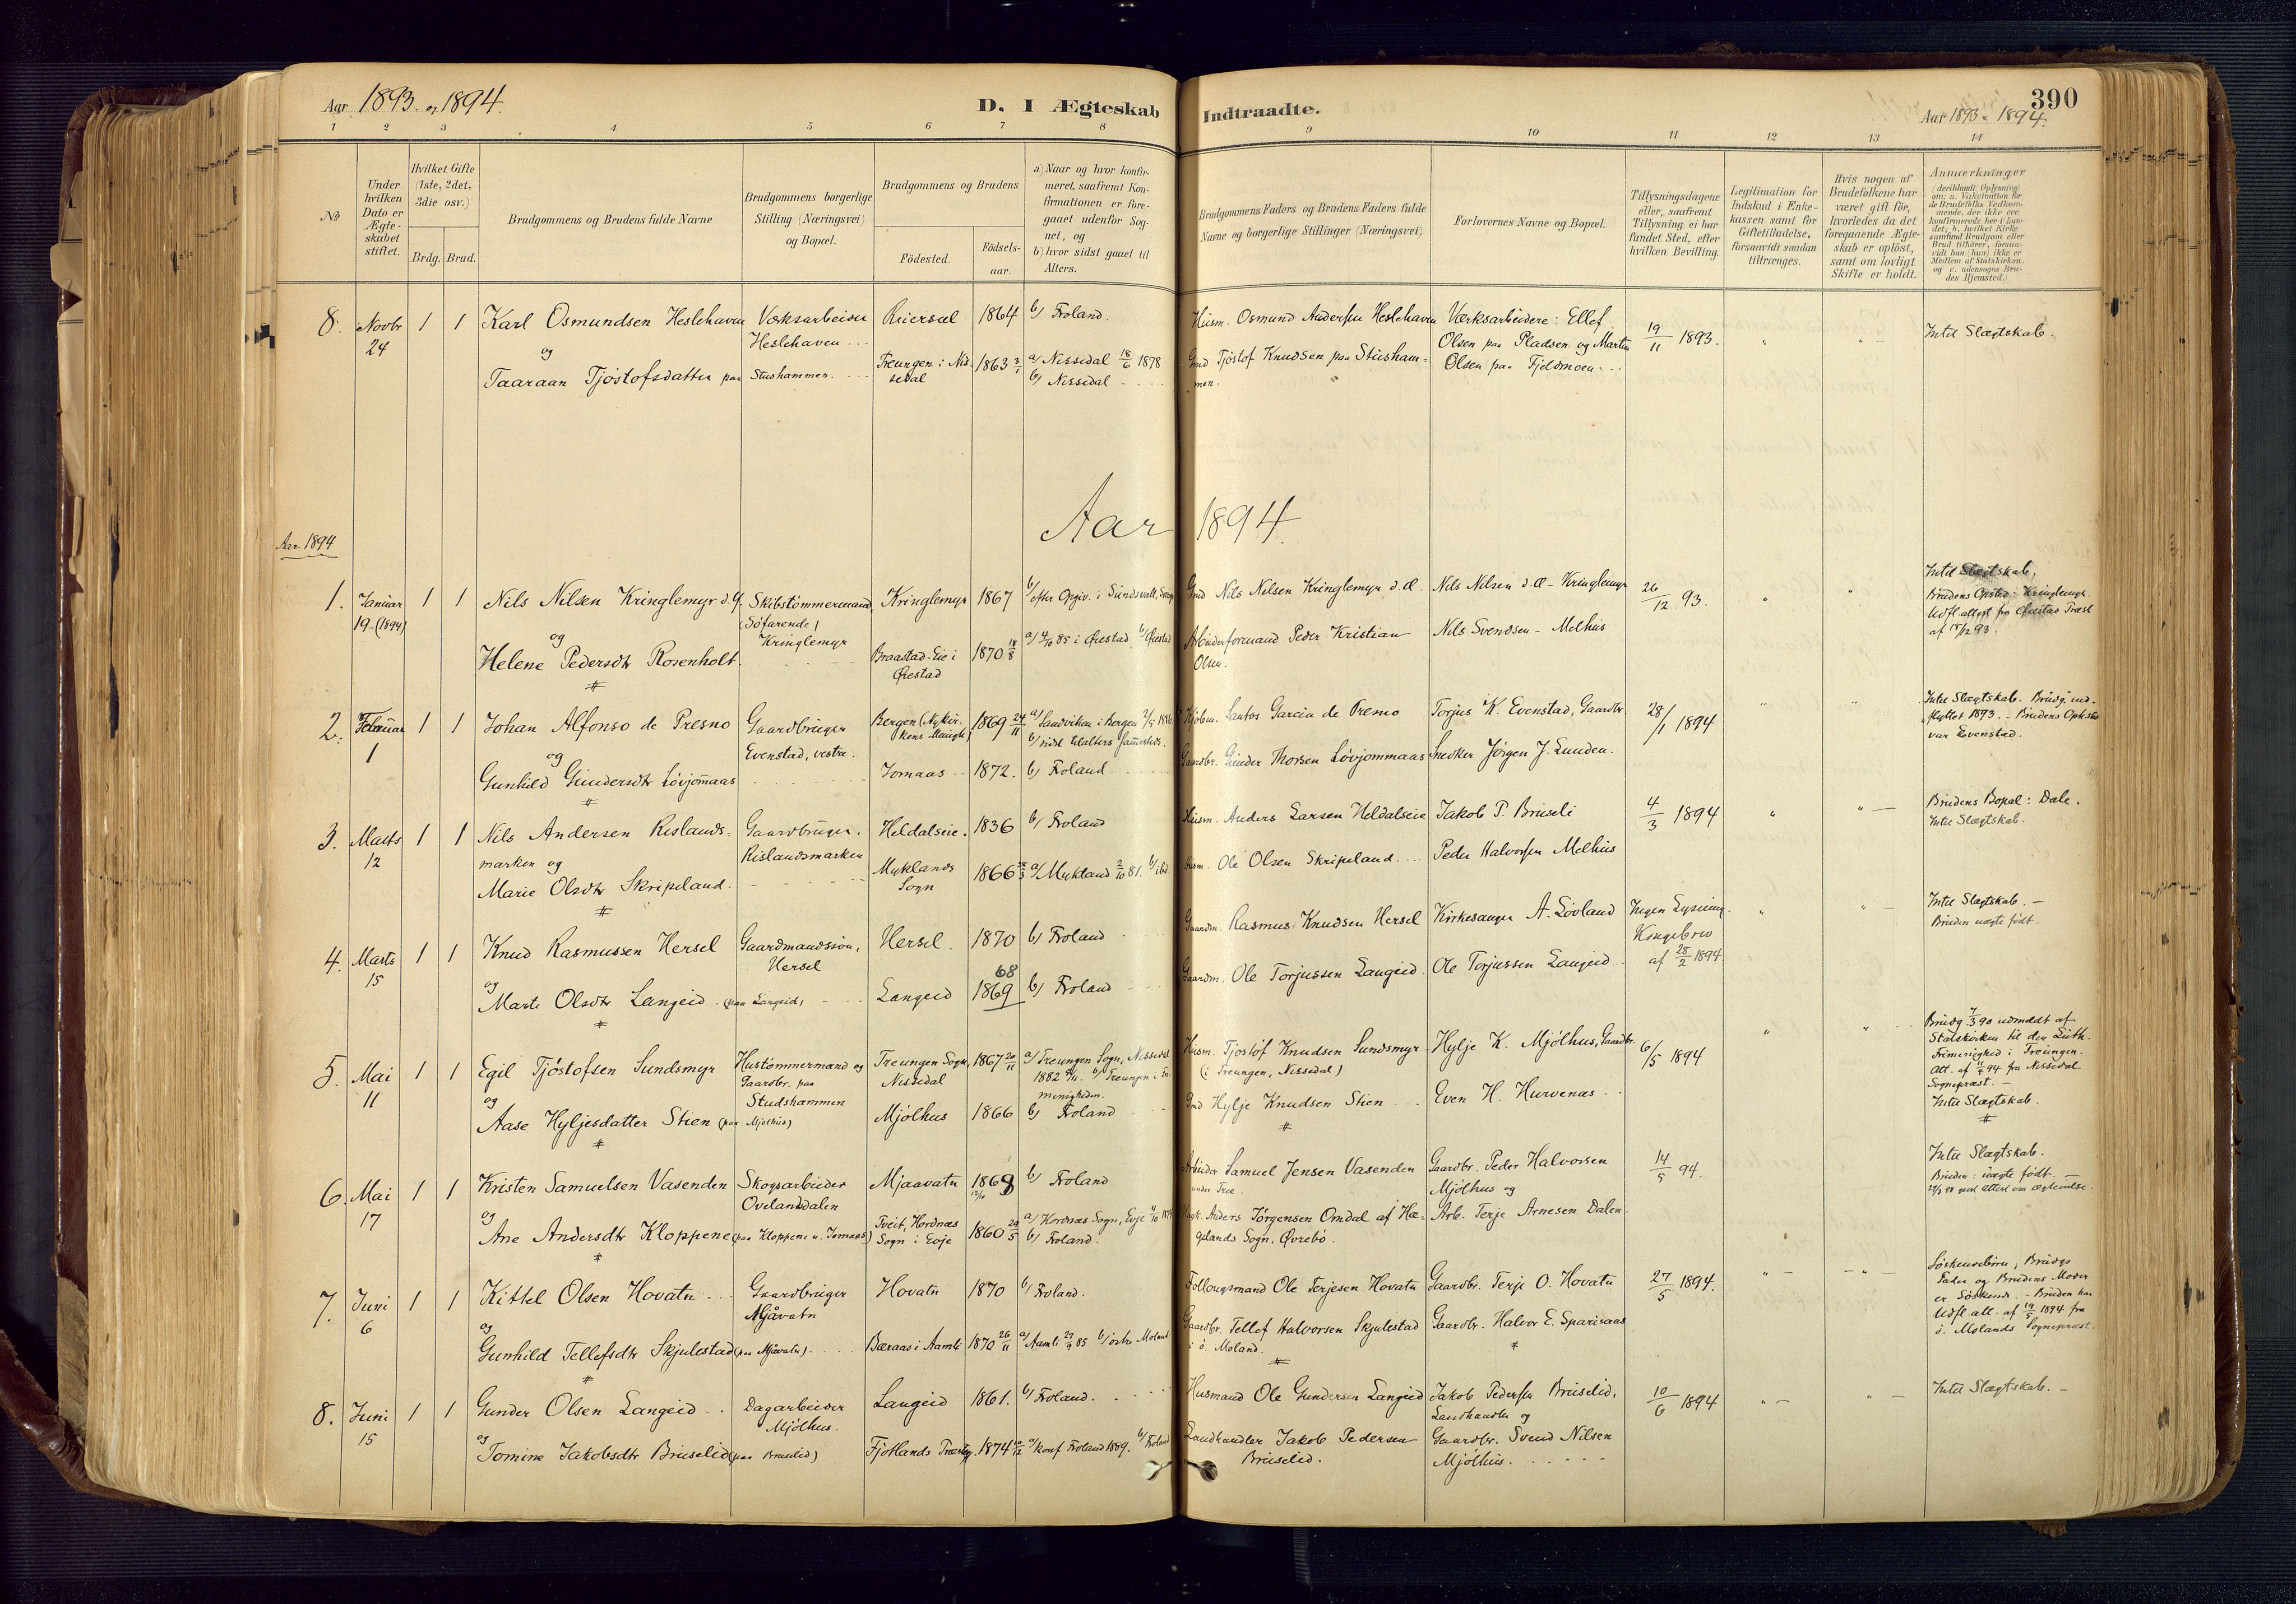 Aar 1893 og 1894.
D. I Ægteskab Indtraadte.
Aar 1893 - 1894.
390
1 2 3 4 5 6 7 8 9 10 11 12 13 14
No
Under hvilken Dato er Ægteskabet stiftet.
Hvilket Gifte (1ste, 2det, 3die osv.)
Brdg. Brud.
Brudgommens og Brudens fulde Navne
Brudgommens borgerlige Stilling (Næringsvei) og Bopæl.
Brudgommens og Brudens
Fødested.
Fødsels-aar.
a) Naar og hvor konfirmeret, saafremt Konfirmationen er foregaaet udenfor Sognet, og
b) hvor sidst gaaet til Alters.
Brudgommens Faders og Brudens Faders fulde Navne og borgerlige Stillinger (Næringsvei)
Forlovernes Navne og Bopæl.
Tillysningsdagene eller, saafremt Tillysning ei har fundet Sted, efter hvilken Bevilling.
Legitimation for Indskud i Enkekassen samt for Giftetilladelse, forsaavidt saadan tiltrænges.
Hvis nogen af Brudefolkene har været gift før, hvorledes da det foregaaende Ægteskab er opløst, samt om lovligt Skifte er holdt.
Anmærkninger
(deriblandt Oplysning om: a. Vakcination for de Brudefolks Vedkommende, der ikke ere konfirmerede her i Landet; b. hvilket Kirkesamfund Brudgom eller Brud tilhører, forsaavidt han (hun) ikke er Medlem af Statskirken, og c. udensogns Brudes Hjemsted.)
8. Novbr 24 1 1 Karl Osmundsen Heslehaven
og
Taaraan Tjøstofsdatter paa Stushammen
Værksarbeider
Heslehaven
Reiersøl 1864 b) Froland.
Treungen i Nissedal 1863 3/1 a) Nissedal 18/6 1878
b) Nissedal
Husm. Osmund Andersen Heslehaven
Gmd Tjøstof Knudsen paa Stushammen.
Værksarbeidere: Ellef
Olsen paa Pladsen og Martin
Olsen paa Fjeldmoen.
19/11 1893.
Intet Slægtskab.
Aar 1894.
Aar 1894
1. Januar 19 (1894) 1 1 Nils Nilsen Kringlemyr d.y.
og
Helene Pedersdtr Rosenholt.
Skibstømmermand
(Søfarende)
Kringlemyr
Kringlemyr 1867 b/ efter Opgiv. i Sundsvall
Braastad-Eie i Øiestad 1870 18/8 a) 85 i Øiestad b/ Øiestad
Gmd Nils Nilsen Kringlemyr d.æ.
Arbeiderformand Peder Kristian
Olsen.
Nils Nilsen d.æ - Kringlemyr
Nils Svendsen - Melhus
26/12 93.
Intet Slægtskab,
Brudens Opsted: Kringlemyr.
Udfl. attest fra Øiestad Præst
af 18/12 93.
2. Februar 1 1 1 Johan Alfonso de Presno
og
Gunhild Gundersdtr Løvjommaas
Gaardbruger
Evenstad, vestre.
Bergen (Nykirkens Menigh.) 1869 24/11 a) Sandviken i Bergen
b) sidst tilalters sammesteds.
Jomaas 1872. b) Froland
Santos Garcia de Presno
Gaardbr. Gunder Thorsen Løvjommaas
Torjus K. Evenstad, Gaardbr.
Snedker Jørgen J. Lunden.
28/1 1894
Intet Slægtskab. Brudg. indflyttet 1893. - Brudens Opsted
var Evenstad.
3. Marts 12 1 1 Nils Andersen Rislands-
marken og
Marie Olsdtr Skripeland.
Gaardbruger.
Rislandsmarken
Heldalseie. 1836 b) Froland
Myklands Sogn 1866 a/ Mykland 2/10 81. b/ ibd.
Husm. Anders Larsen Heldalseie
Husm. Ole Olsen Skripeland.
Jakob P. Bruseli
Peder Halvorsen Melhus
4/3 1894
Brudens Bopæl: Dale.
Intet Slægtskab.
4. Marts 15 1 1 Knud Rasmussen Hersel
og
Marte Olsdtr Langeid (paa Langeid)
Gaardmandssøn,
Hersel
Hersel. 1870 b) Froland
Langeid 68 1869 b) Froland
Gaardm. Rasmus Knudsen Hersel
Gaardm. Ole Torjussen Langeid
Kirkesanger A. Løvland
Ole Torjussen Langeid
Ingen Lysning.
Kongebrev
af 28/2 1894
Intet Slægtskab. -
Bruden uægte født.
5. Mai 11 1 1 Egil Tjøstofsen Sundsmyr
og
Aase Hyljesdatter Stien (paa Mjølhus)
Hustømmermand og
Gaardbr. paa
Studshammen
Treungen Sogn, Nissedal 1867 20/11 a) Treungen Sogn, Nissedal
1882 b) Treungen i Fri-
menigheden.
Mjølhus 1866 b) Froland
Husm. Tjøstof Knudsen Sundsmyr
(i Treungen, Nissedal)
Gmd Hylje Knudsen Stien
Hylje K. Mjølhus, Gaardbr.
Even H. Hurvenæs
6/5 1894
Brudg 90 udmeldt af
Statskirken til den Luth.
Frimenighed i Treungen.
Att. af 94 fra Nissedal
Sognepræst. -
Intet Slægtskab.
6. Mai 17 1 1 Kristen Samuelsen Vasenden
og
Ane Andersdtr Kloppene (paa Kloppene u. Jomaas)
Skogsarbeider
Ovelandsdalen
Mjaavatn 1868 b) Froland
Tveit, Hordnæs
Sogn i Evje 1860 29/5 a) Hordnæs Sogn, Evje
b) Froland.
Arbeider Samuel Jensen Vasenden
Anders Jørgensen Omdal af Hæ-
gelands Sogn, Øvrebø.
Gaardbr. Peder Halvorsen
Mjølhus og
Arb. Terje Arnesen Dalen
14/5 94.
Intet Slægtskab.
Bruden: uægte født. -
7. Juni 6 1 1 Kittel Olsen Hovatn
og
Gunhild Tellefsdtr Skjulestad (paa Mjåvatn).
Gaardbruger
Mjåvatn
Hovatn 1870 b) Froland.
Bæraas i Aamli 1870 26/11 a) Aamli 85 b) østre Moland
Follougsmand Ole Terjesen Hovatn
Gaardbr. Tellef Halvorsen Skjulestad
i ø. Moland.
Gaardbr. Terje O. Hovatn
Gaardbr. Halvor E. Sparsaas
27/5 1894.
Søskendebørn; Brudgs
Fader og Brudens Moder
er Søskende. - Bruden har
Udfl. att. af 19/5 1894 fra
ø. Molands Sognepræst.
8. Juni 15 1 1 Gunder Olsen Langeid
og
Tomine Jakobsdtr Bruselid (paa Bruselid)
Dagarbeider
Mjølhus.
Langeid 1861. b) Froland.
Fjotlands Præstg. 1874 a) konf Froland 1889. b) Froland
Husmand Ole Gundersen Langeid
Landhandler Jakob Pedersen
Bruselid.
Jakob Pedersen Bruselid,
Landhandler og
Gaardbr. Svend Nilsen
Mjølhus.
10/6 1894
Intet Slægtskab. -